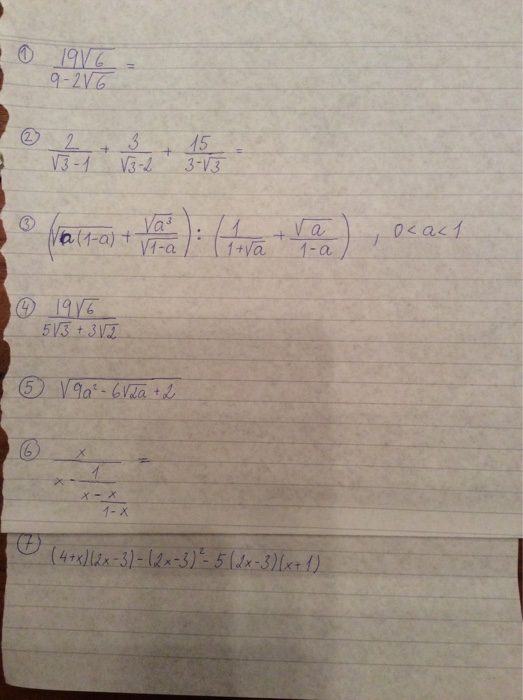 ① 19√6 / (9-2√6) =
② 2/(√3-1) + 3/(√3-2) + 15/(3-√3) =
③ (√a(1-a) + √a³/√1-a) : (1/(1+√a) + √a/(1-a)), 0<a<1
④ 19√6 / (5√3+3√2)
⑤ √9a²-6√2a+2
⑥ x/(x-1/(x-x/(1-x))) =
⑦ (4+x)(2x-3)-(2x-3)²-5(2x-3)(x+1)